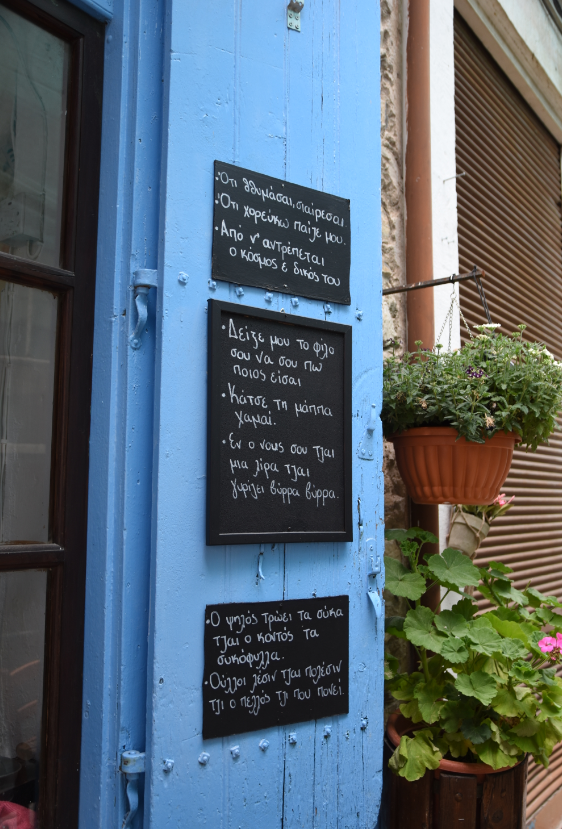 ·Ότι θθυμάσαι, σιαίρεσαι
·Ότι χορεύκω παίζε μου.
·Από ν' αντρέπεται
ο κόσμος ε δικός του
·Δείξε μου το φίλο
σου να σου πω
ποιος είσαι
·Κάτσε τη μάππα
χαμαί.
·Εν ο νους σου τζαι
μια λίρα τζαι
γυρίζει βύρρα βύρρα.
·Ο ψηλός τρώει τα σύκα
τζαι ο κοντός τα
συκόφυλλα.
·Ούλλοι λέσιν τζαι πολέσιν
τζι ο πελλός τζι που πονεί.